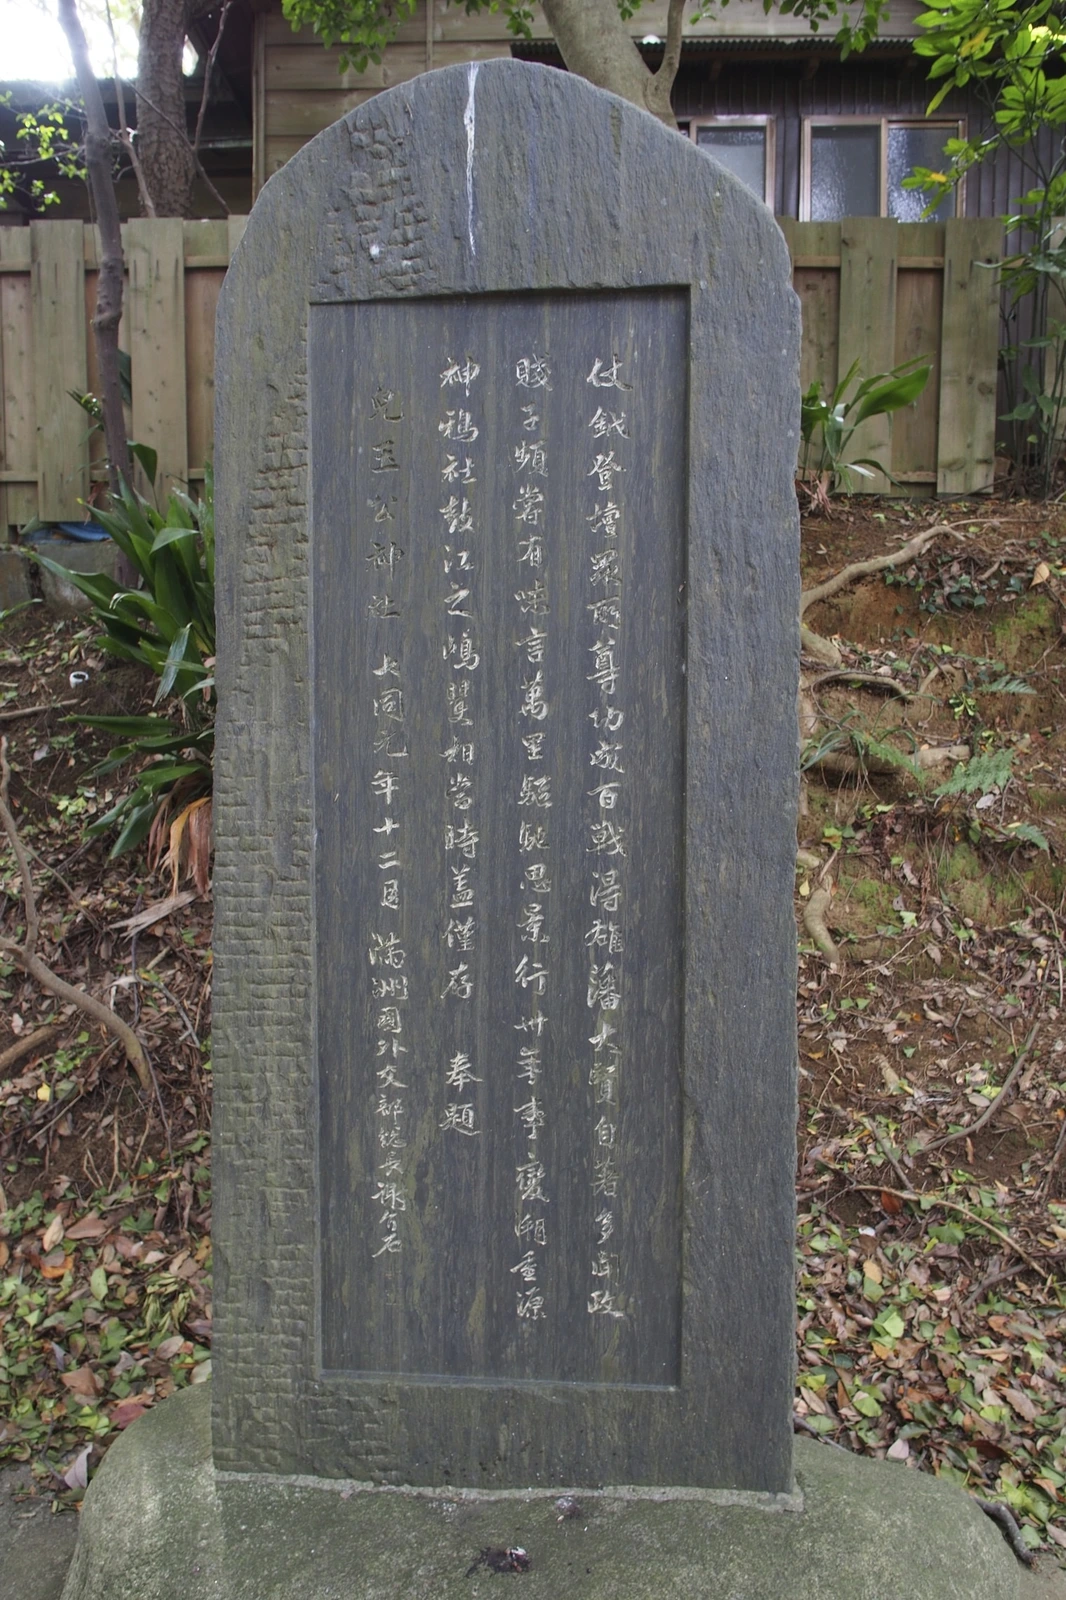 仗鉞登壇眾所尊功成百戰得雄藩大賢自著多聞政
賤子頻嘗有味言萬里驅馳思景行卅年事變溯重源
神鴉社鼓江之嶋雙相當時蓋僅存　奉題
兒玉公神社　大同元年十二月　滿洲國外交部總長謝介石